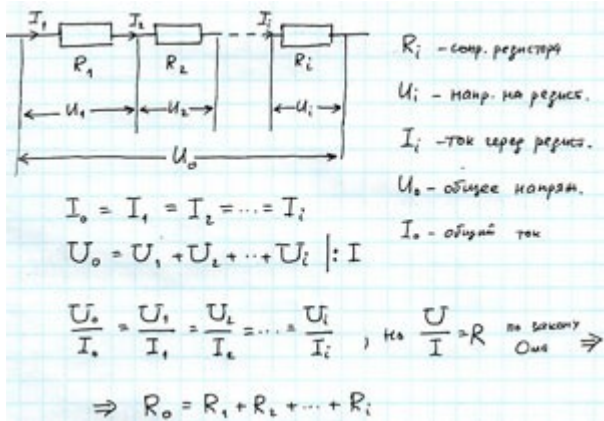 I₁ I₂ Iᵢ
R₁ R₂ Rᵢ
U₁ U₂ Uᵢ
U₀
Rᵢ – сопр. резистора
Uᵢ – напр. на резист.
Iᵢ – ток через резист.
U₀ – общее напряж.
I₀ – общий ток
I₀ = I₁ = I₂ = ... = Iᵢ
U₀ = U₁ + U₂ + ... + Uᵢ |: I
U₀/I₀ = U₁/I₁ = U₂/I₂ = ... = Uᵢ/Iᵢ , но U/I = R по закону Ома ⇒
⇒ R₀ = R₁ + R₂ + ... + Rᵢ